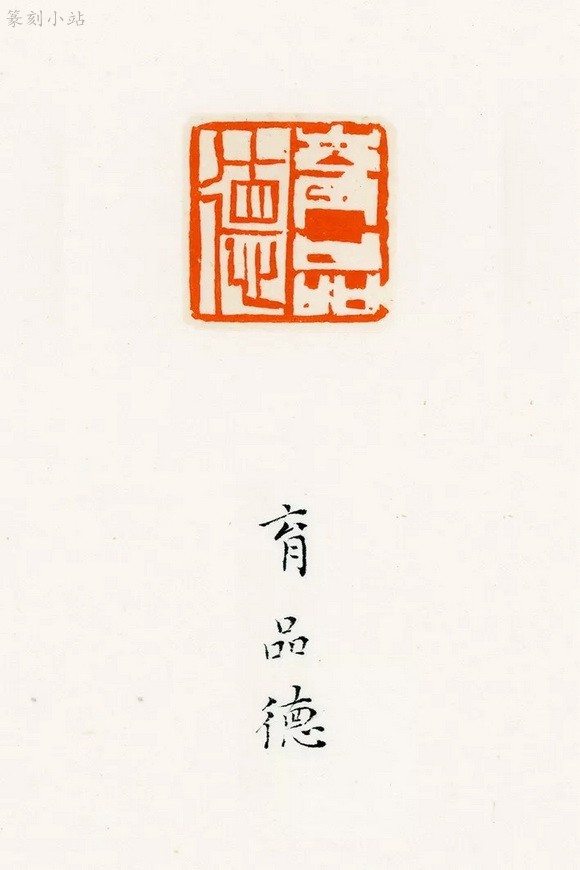 篆刻小站
育品德
育
品
德